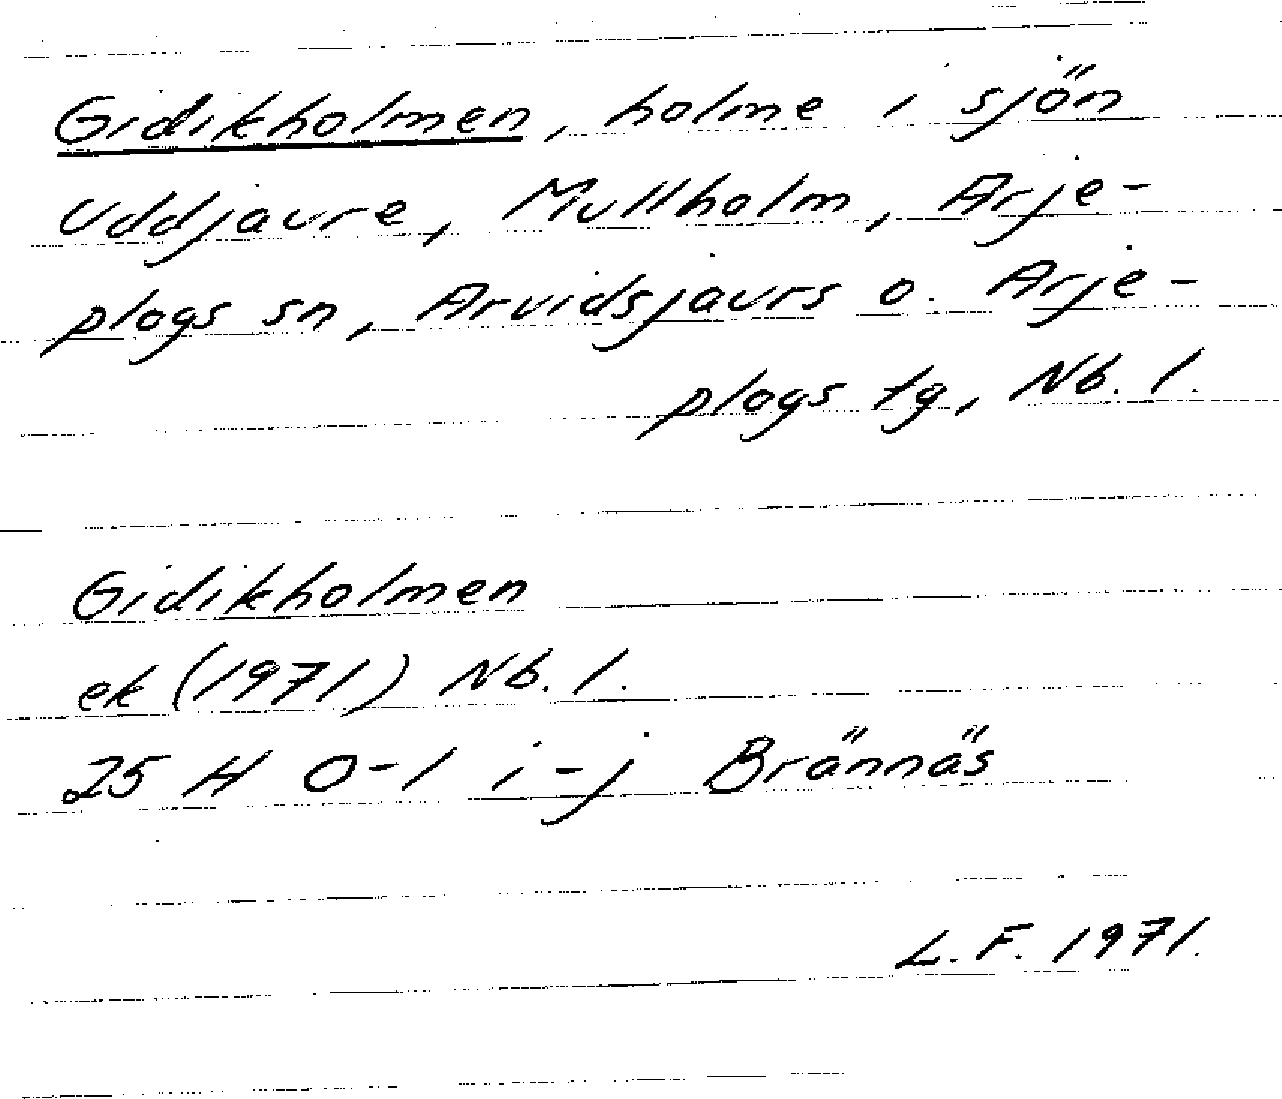 Gidikholmen, holme i sjön
Uddjaure, Mullholm, Arje-
plogs sn, Arvidsjaurs o. Arje-
plogs tg, Nb. l.
Gidikholmen
ek (1971) Nb. l.
25 H 0-1 i-j Brännäs
L. F. 1971.